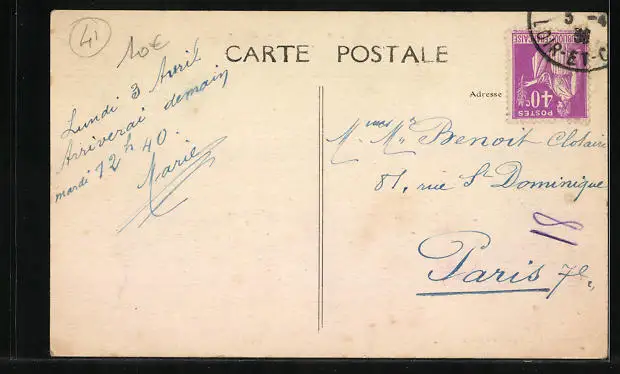 41
10€
CARTE POSTALE
Lundi 3 Avril
Arriverai demain
mardi 12 h 40.
Marie
Adresse
Benoit Clotaire
81, rue St Dominique
18
Paris 7e.
POSTES
40c
3 -4
LOIR-ET-C